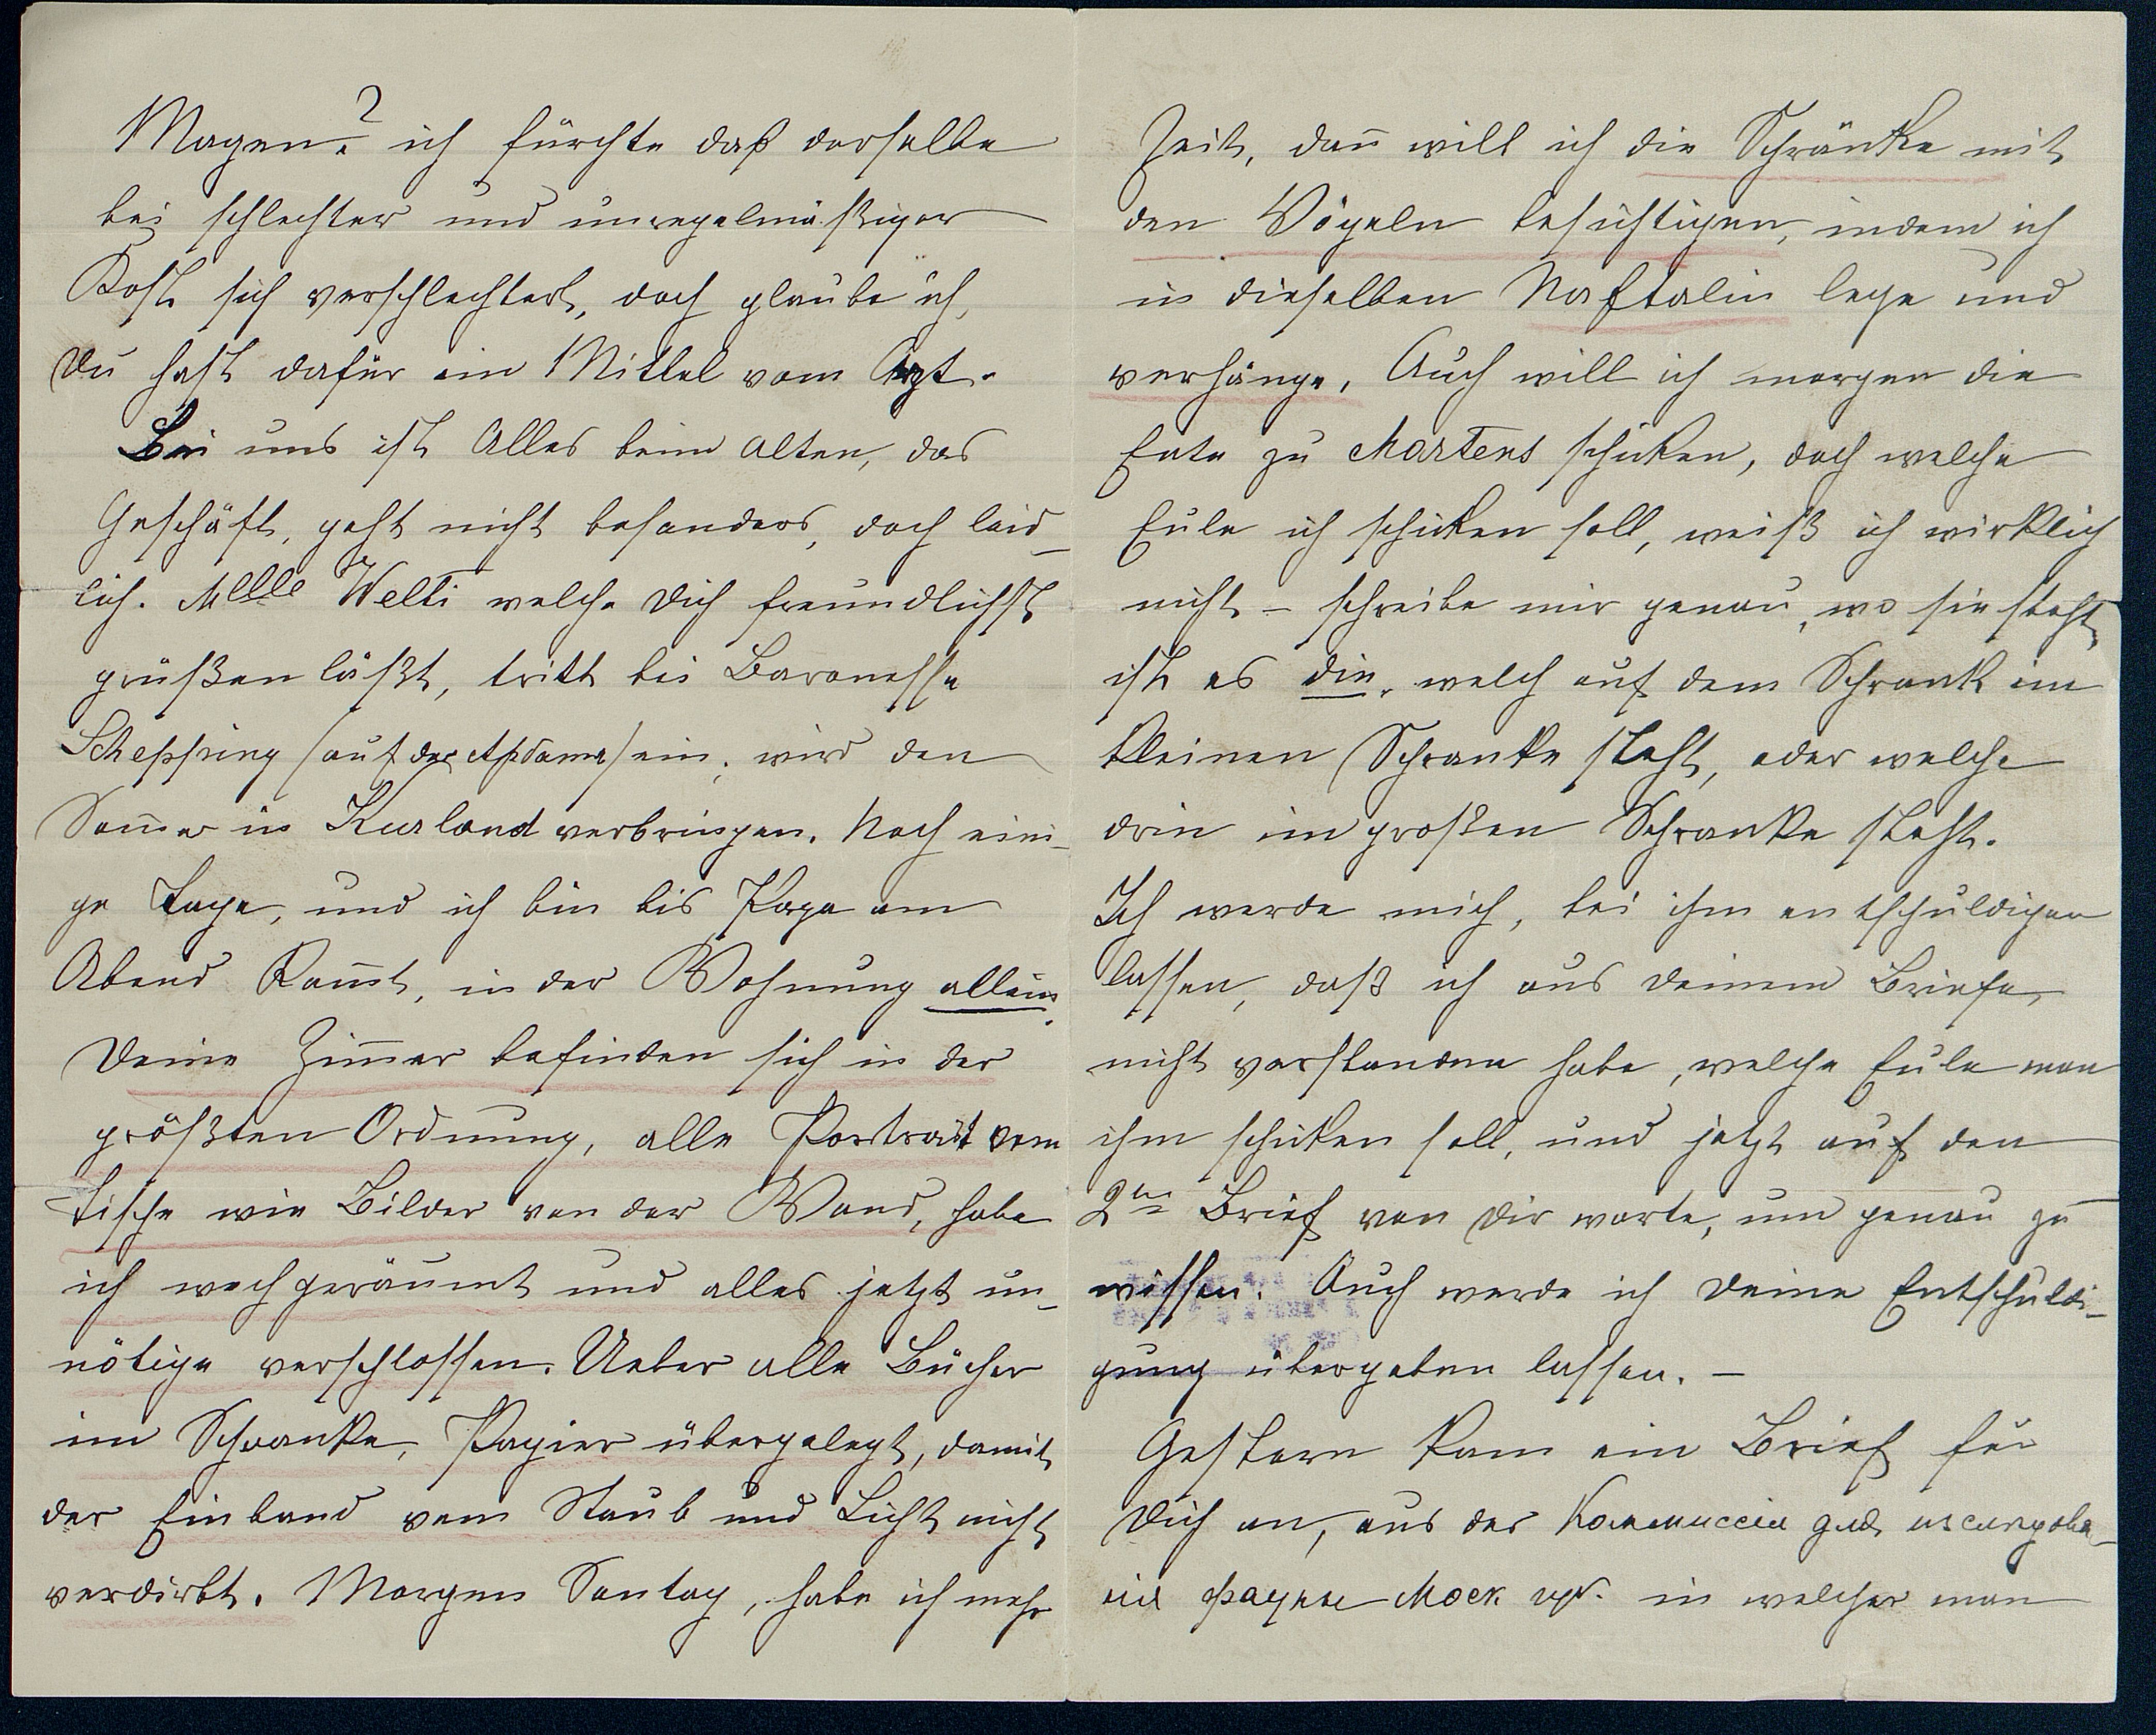 Magen? ich fürchte daß derselbe
bei schlechter und unregelmäßiger
Kost sich verschlechtert, doch glaube ich,
Du hast dafür ein Mittel vom Arzt.
Bei uns ist Alles beim alten, das
Geschäft, geht nicht besonders, doch leid-
lich. Mlle Welti welche Dich freundlichst
grüßen läßt, tritt bei Baronesse
(auf der) ein, wird den
Som̄er in Kurland verbringen. Noch eini-
ge Tage, und ich bin bis Papa am
Abend kom̄t, in der Wohnung allein.
Deine Zim̄er befinden sich in der
größten Ordnung, alle Portrait vom
Tische wie Bilder von der Wand, habe
ich wechgeräumt und alles jetzt un-
nötige verschlossen. Ueber alle Bücher
im Schranke, Papier übergelegt, damit
der Einband vom Staub und Licht nicht
verdirbt. Morgen Sontag, habe ich mehr
Zeit, dan̄ will ich die Schränke mit
den Vögeln besichtigen, indem ich
in dieselben Naftalin lege und
verhänge. Auch will ich morgen die
Ente zu Martens schicken, doch welche
Eule ich schicken soll, weiß ich wirklich
nicht – schreibe mir genau, wo sie steht,
ist es die, welch auf dem Schrank im
kleinen Schranke steht, oder welche
drin im großen Schranke steht.
Ich werde mich, bei ihm entschuldigen
lassen, daß ich aus Deinem Briefe,
nicht verstanden habe, welche Eule man
ihm schicken soll, und jetzt auf den
2ten Brief von Dir warte, um genau zu
wissen. Auch werde ich Deine Entschuldi-
gung übergeben lassen. –
Gestern kam ein Brief für
Dich an, aus der Коммиссіи для изслѣдова-
нія фауны Моск. губ. in welcher man